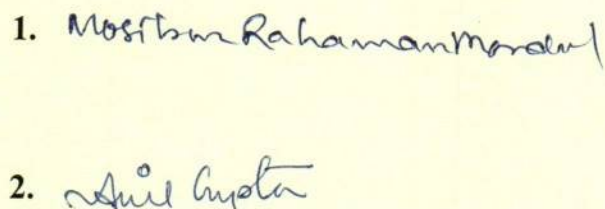 1. Mosibur Rahaman Mondal
2. Anil Gupta